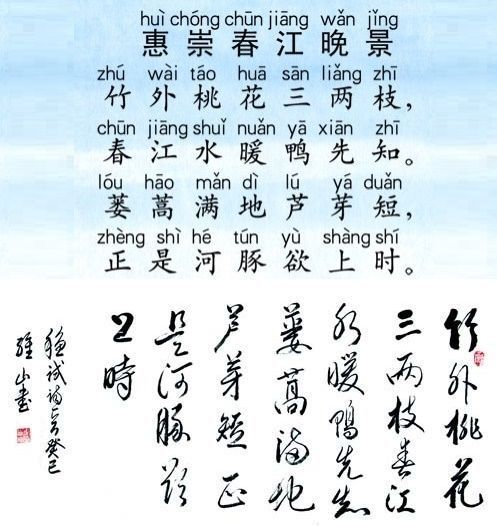 huì chóng chūn jiāng wǎn jǐng
惠崇春江晚景
zhú wài táo huā sān liǎng zhī
竹外桃花三两枝，
chūn jiāng shuǐ nuǎn yā xiān zhī
春江水暖鸭先知。
lóu hāo mǎn dì lú yá duǎn
蒌蒿满地芦芽短，
zhèng shì hé tún yù shàng shí
正是河豚欲上时。
竹外桃花
三两枝春江
水暖鴨先知
蔞蒿满地
芦芽短正
是河豚欲
上時
癸巳